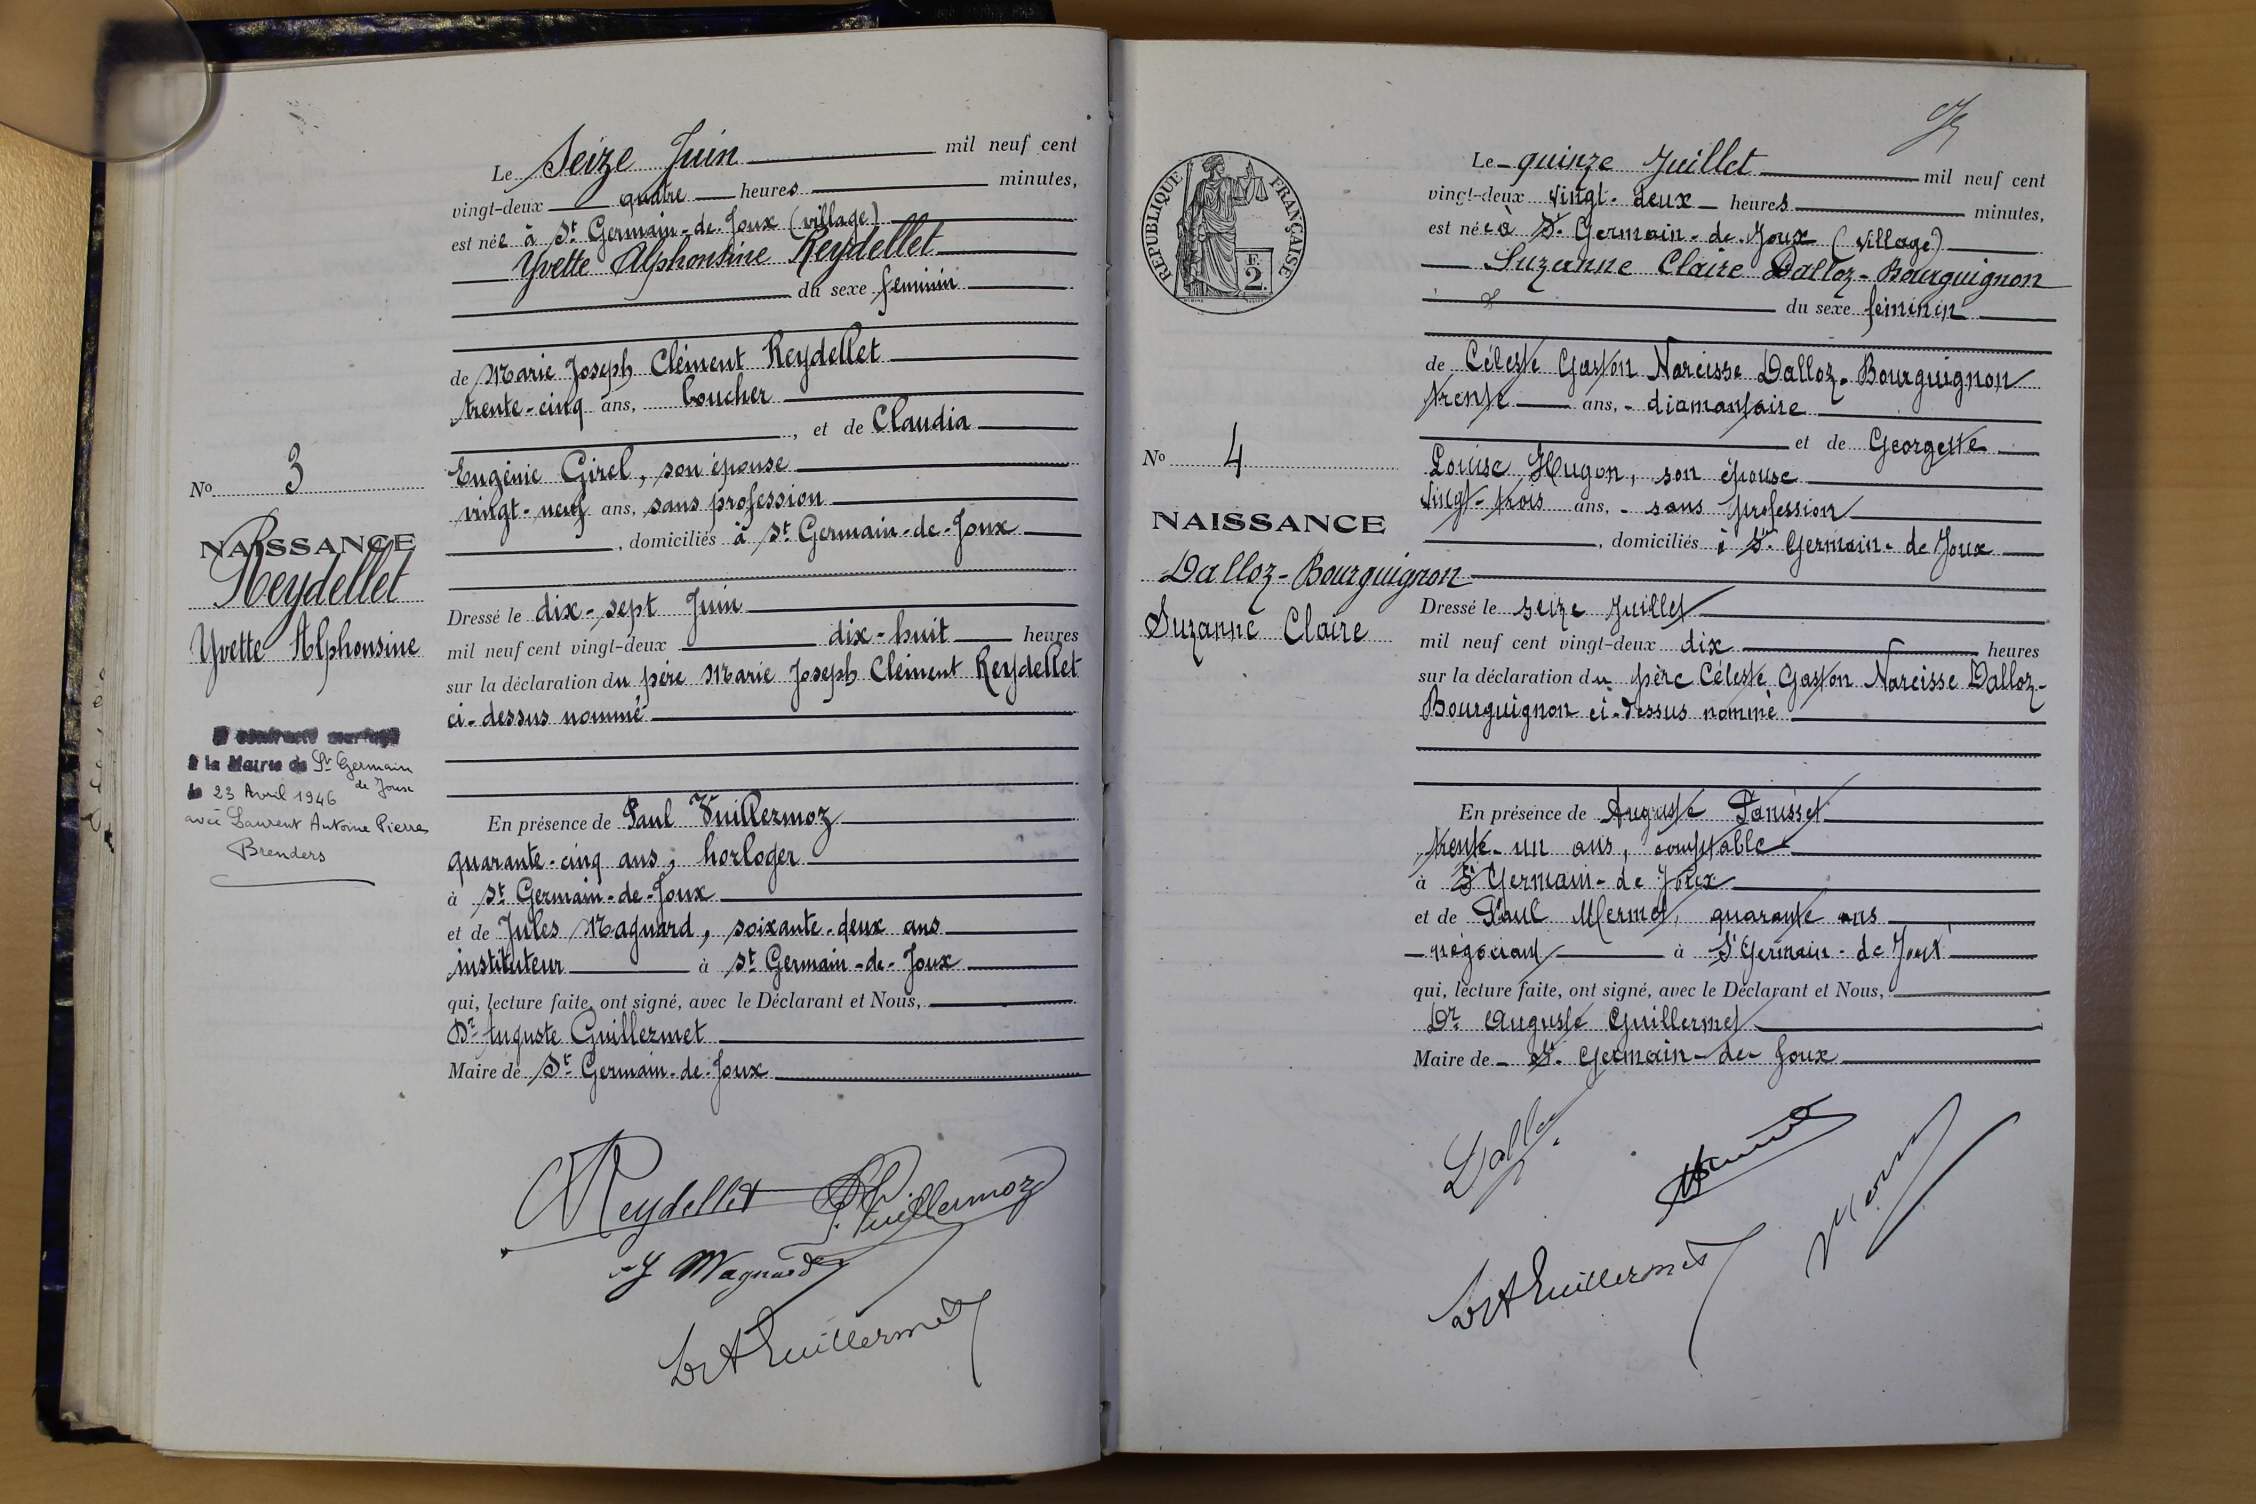 Le Seize Juin mil neuf cent
vingt-deux quatre heures minutes,
est née à St Germain-de-Joux (village)
Yvette Alphonsine Reydellet
du sexe féminin
de Marie Joseph Clément Reydellet
trente-cinq ans, boucher
, et de Claudia
Eugénie Girel, son épouse
vingt-neuf ans, sans profession
, domiciliés à St Germain-de-Joux
No 3
NAISSANCE
Reydellet
Yvette Alphonsine
Dressé le dix-sept Juin
mil neuf cent vingt-deux dix-huit heures
sur la déclaration du père Marie Joseph Clément Reydellet
ci-dessus nommé
mariage
à la Mairie de St Germain
de Joux
le 23 Avril 1946
avec Laurent Antoine Pierre
Brenders
En présence de Paul Vuillermoz
quarante-cinq ans, horloger
à St Germain-de-Joux
et de Jules Magnard, soixante-deux ans
instituteur à St Germain-de-Joux
qui, lecture faite, ont signé, avec le Déclarant et Nous,
Dr Auguste Guillermet
Maire de St Germain-de-Joux
Reydellet P. Vuillermoz
J Magnard
Dr A Guillermet
RÉPUBLIQUE FRANÇAISE
F.
2
Le quinze Juillet mil neuf cent
vingt-deux vingt-deux heures minutes,
est née à St Germain-de-Joux (village)
Suzanne Claire Dalloz-Bourguignon
du sexe féminin
de Céleste Gaston Narcisse Dalloz-Bourguignon
trente ans, diamantaire
et de Georgette
Louise Hugon, son épouse
vingt-trois ans, sans profession
, domiciliés à St Germain-de Joux
No 4
NAISSANCE
Dalloz-Bourguignon
Suzanne Claire
Dressé le seize Juillet
mil neuf cent vingt-deux dix heures
sur la déclaration du père Céleste Gaston Narcisse Dalloz-
Bourguignon ci-dessus nommé
En présence de Auguste Panisset
trente-un ans, comptable
à St Germain-de Joux
et de Paul Mermet, quarante ans
négociant à St Germain-de Joux
qui, lecture faite, ont signé, avec le Déclarant et Nous,
Dr Auguste Guillermet
Maire de St Germain-de Joux
Dalloz
Dr A Guillermet